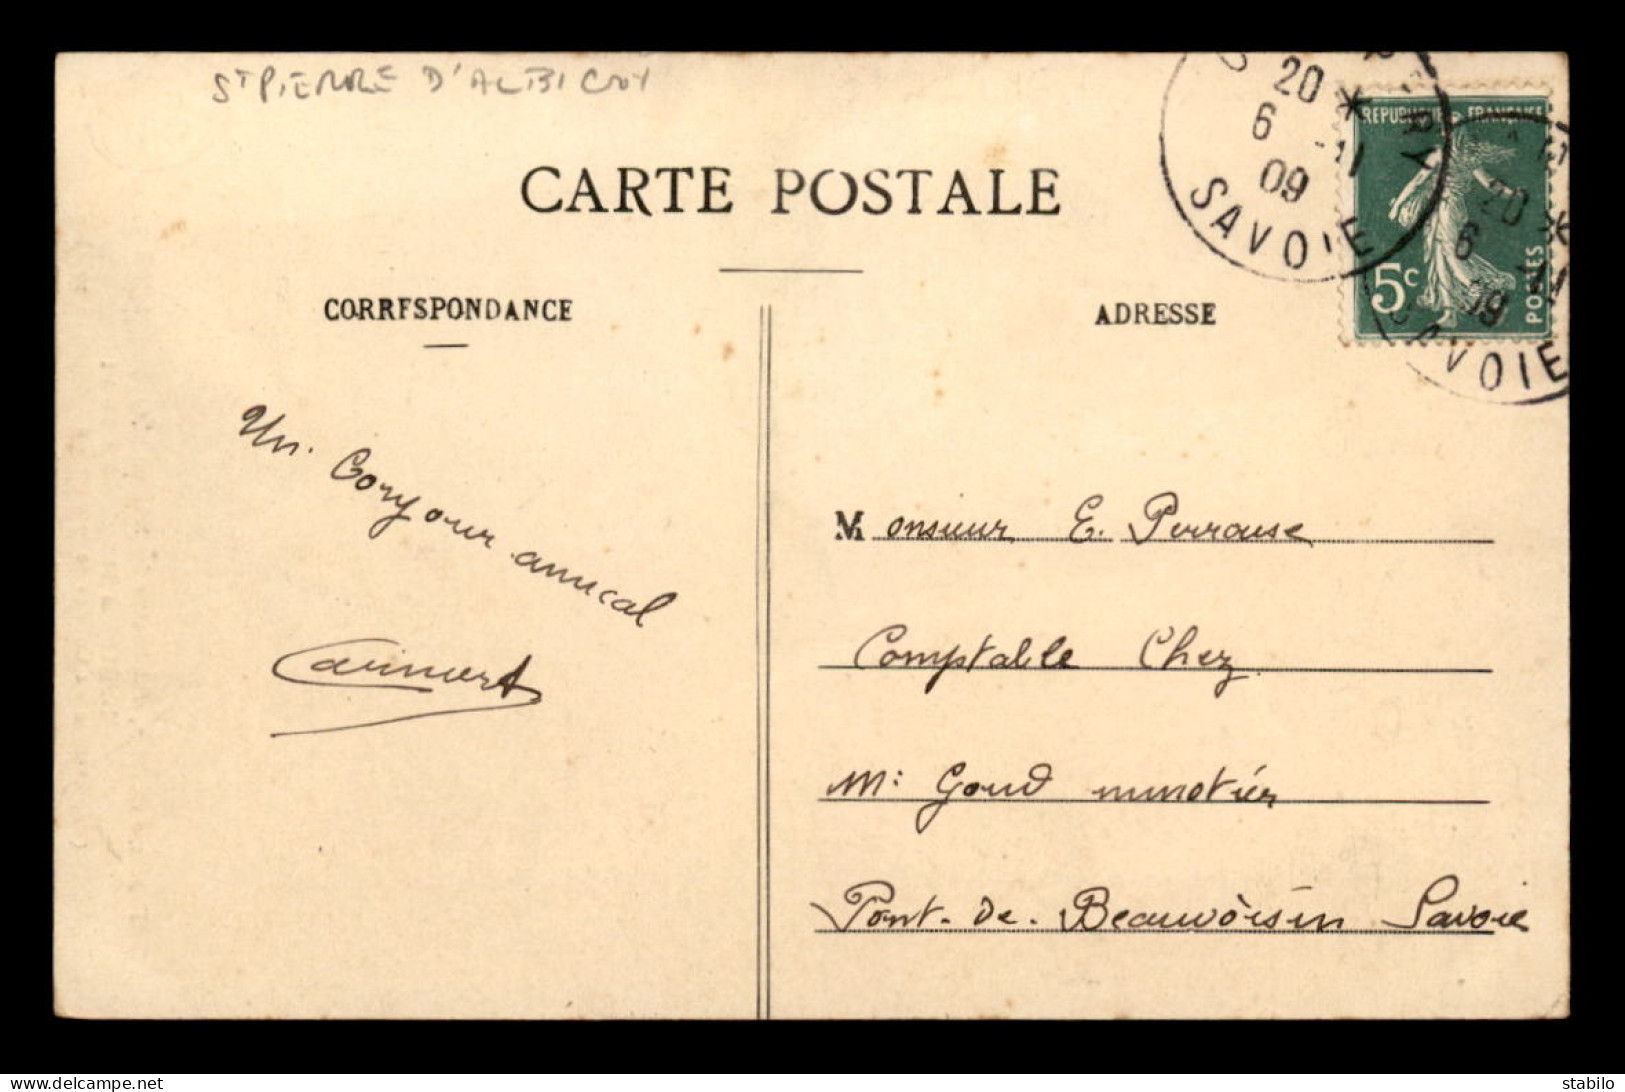 St PIERRE D'ALBIGNY
CARTE POSTALE
CORRESPONDANCE
ADRESSE
20 *
6 11
09
SAVOIE
REPUBLIQUE FRANÇAISE
5c
POSTES
20 *
6 11
09
SAVOIE
Un Bonjour amical
Monsieur E. Perrouse
Comptable Chez
Mr Goud minotier
Pont-de-Beauvoisin Savoie
stabilo